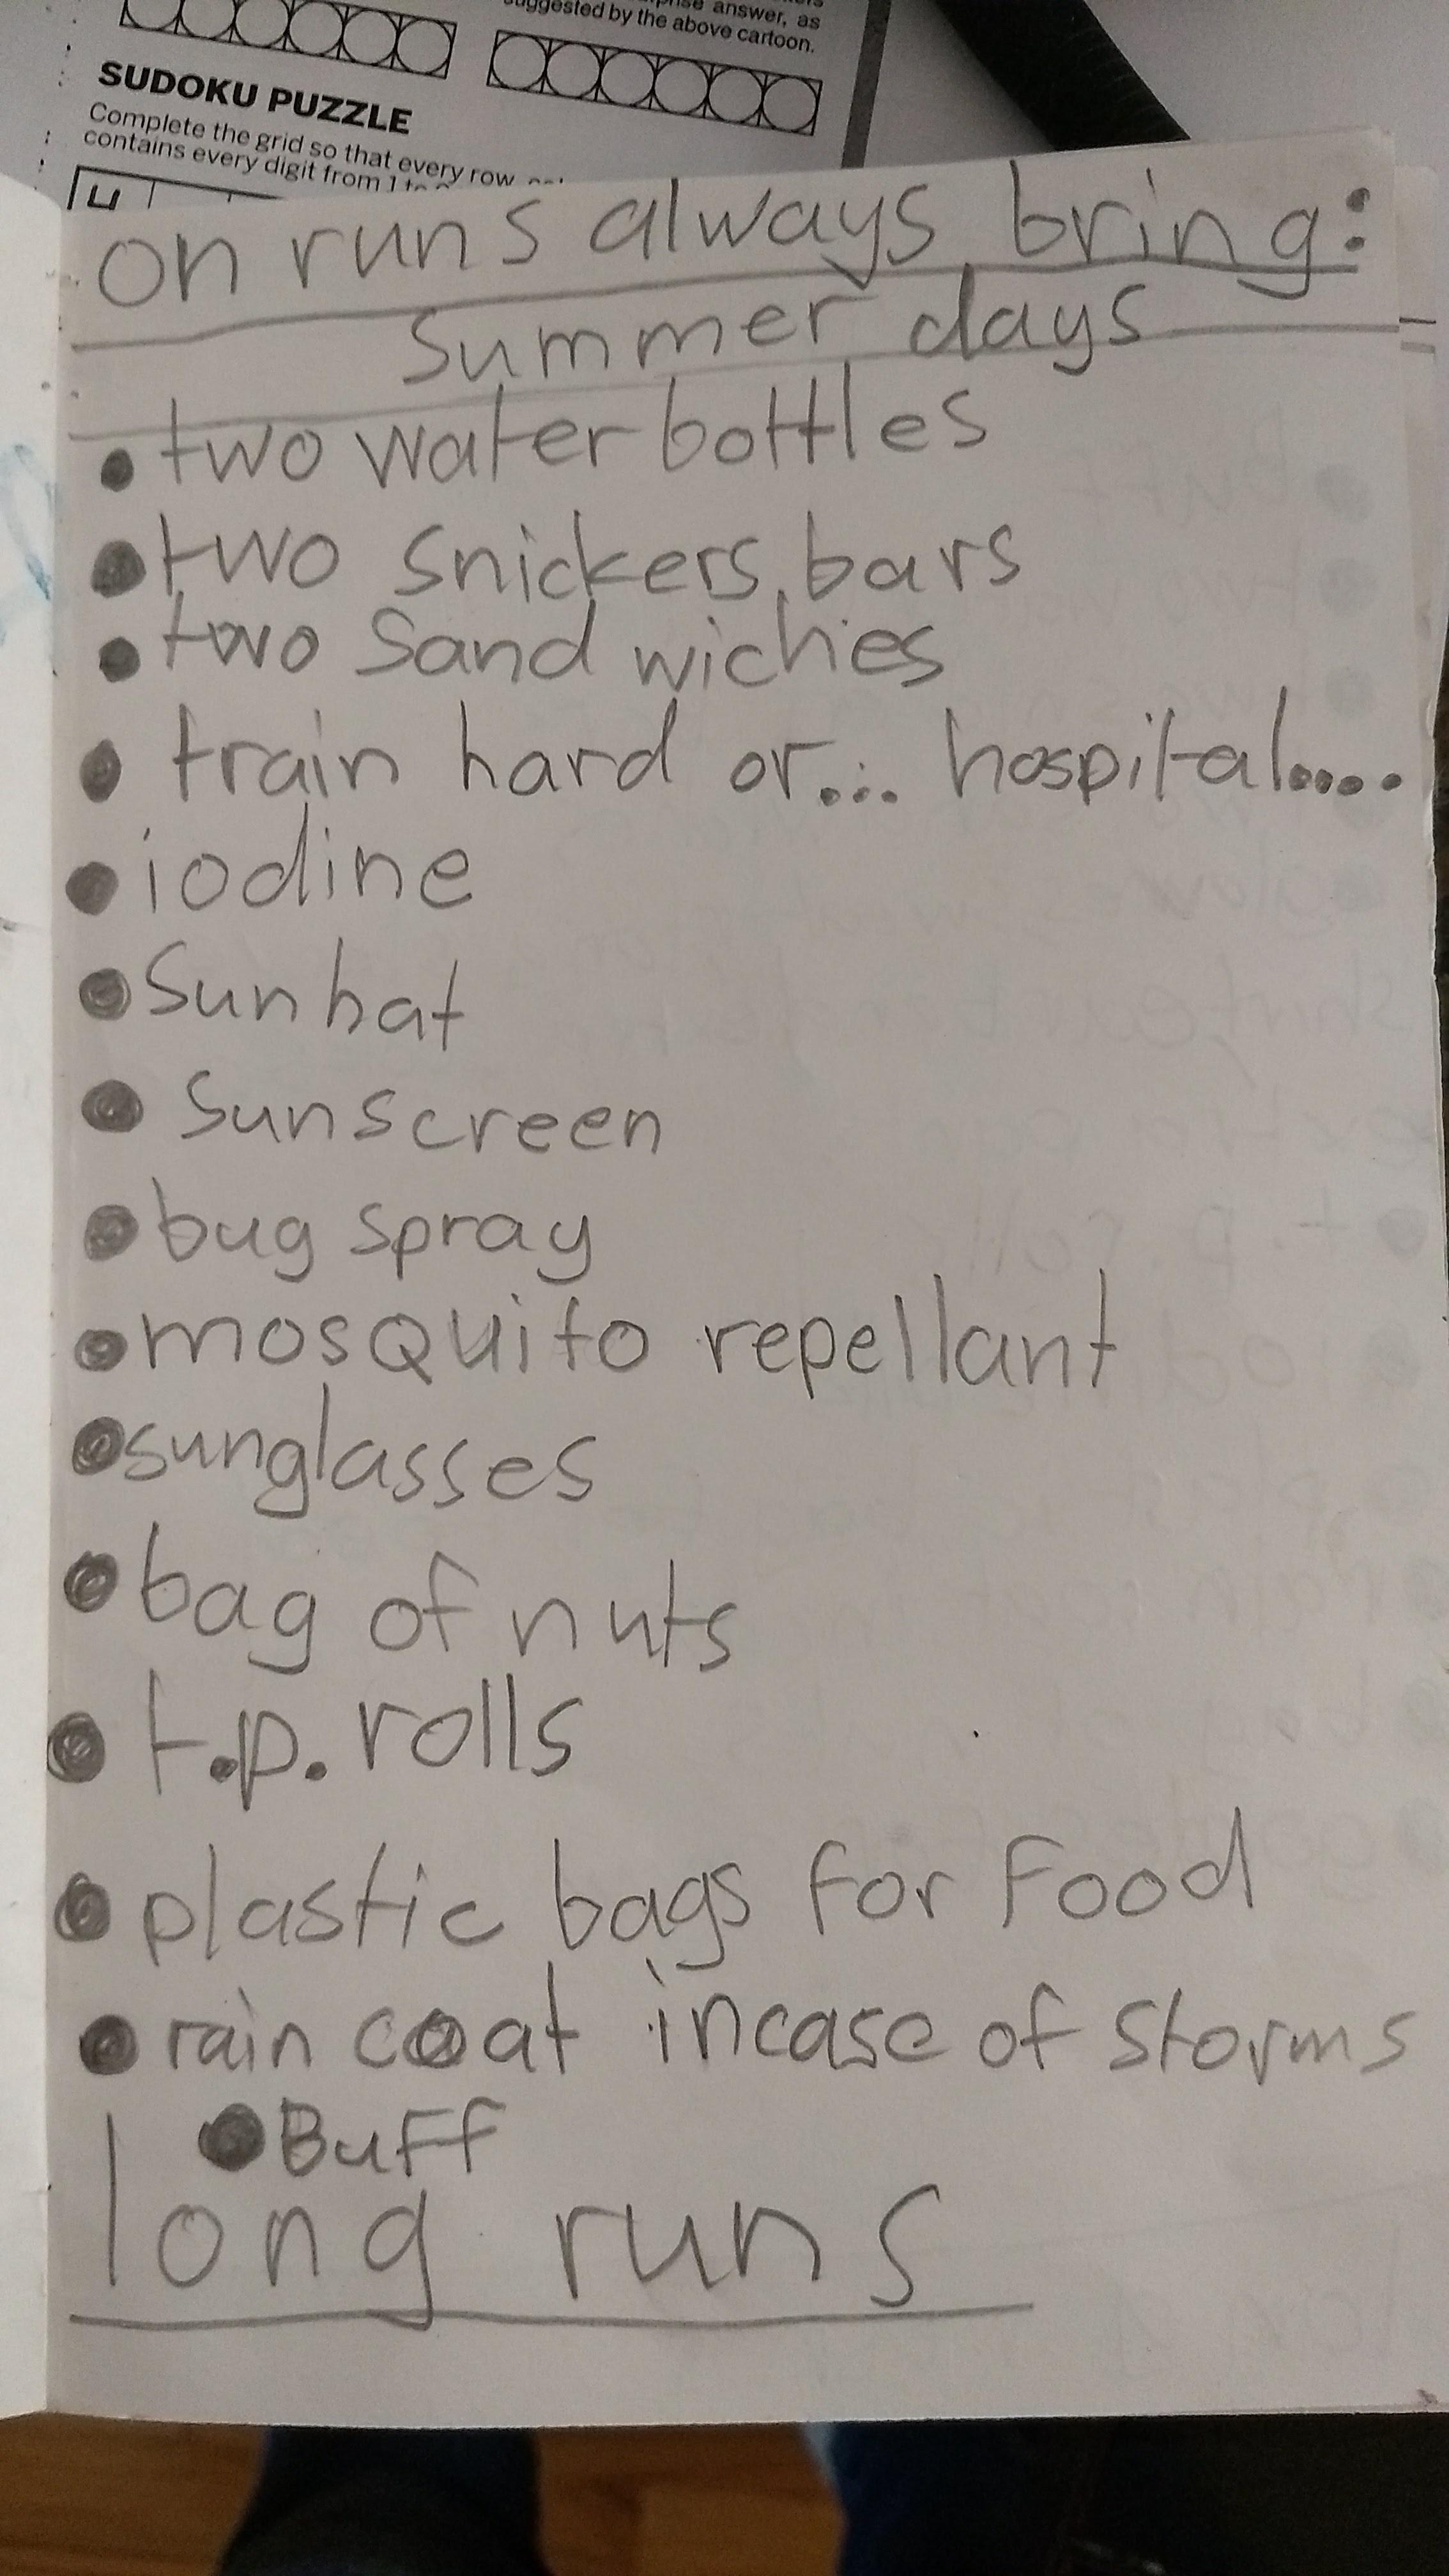 answer, as
suggested by the above cartoon.
SUDOKU PUZZLE
Complete the grid so that every row,
contains every digit from 1 to
on runs always bring:
summer days
• two water bottles
• two snickers bars
• two sand wiches
• train hard or... hospital....
• iodine
• Sun hat
• Sunscreen
• bug spray
• mosquito repellant
• sunglasses
• bag of nuts
• t.p. rolls
• plastic bags for Food
• rain coat incase of storms
• Buff
long runs